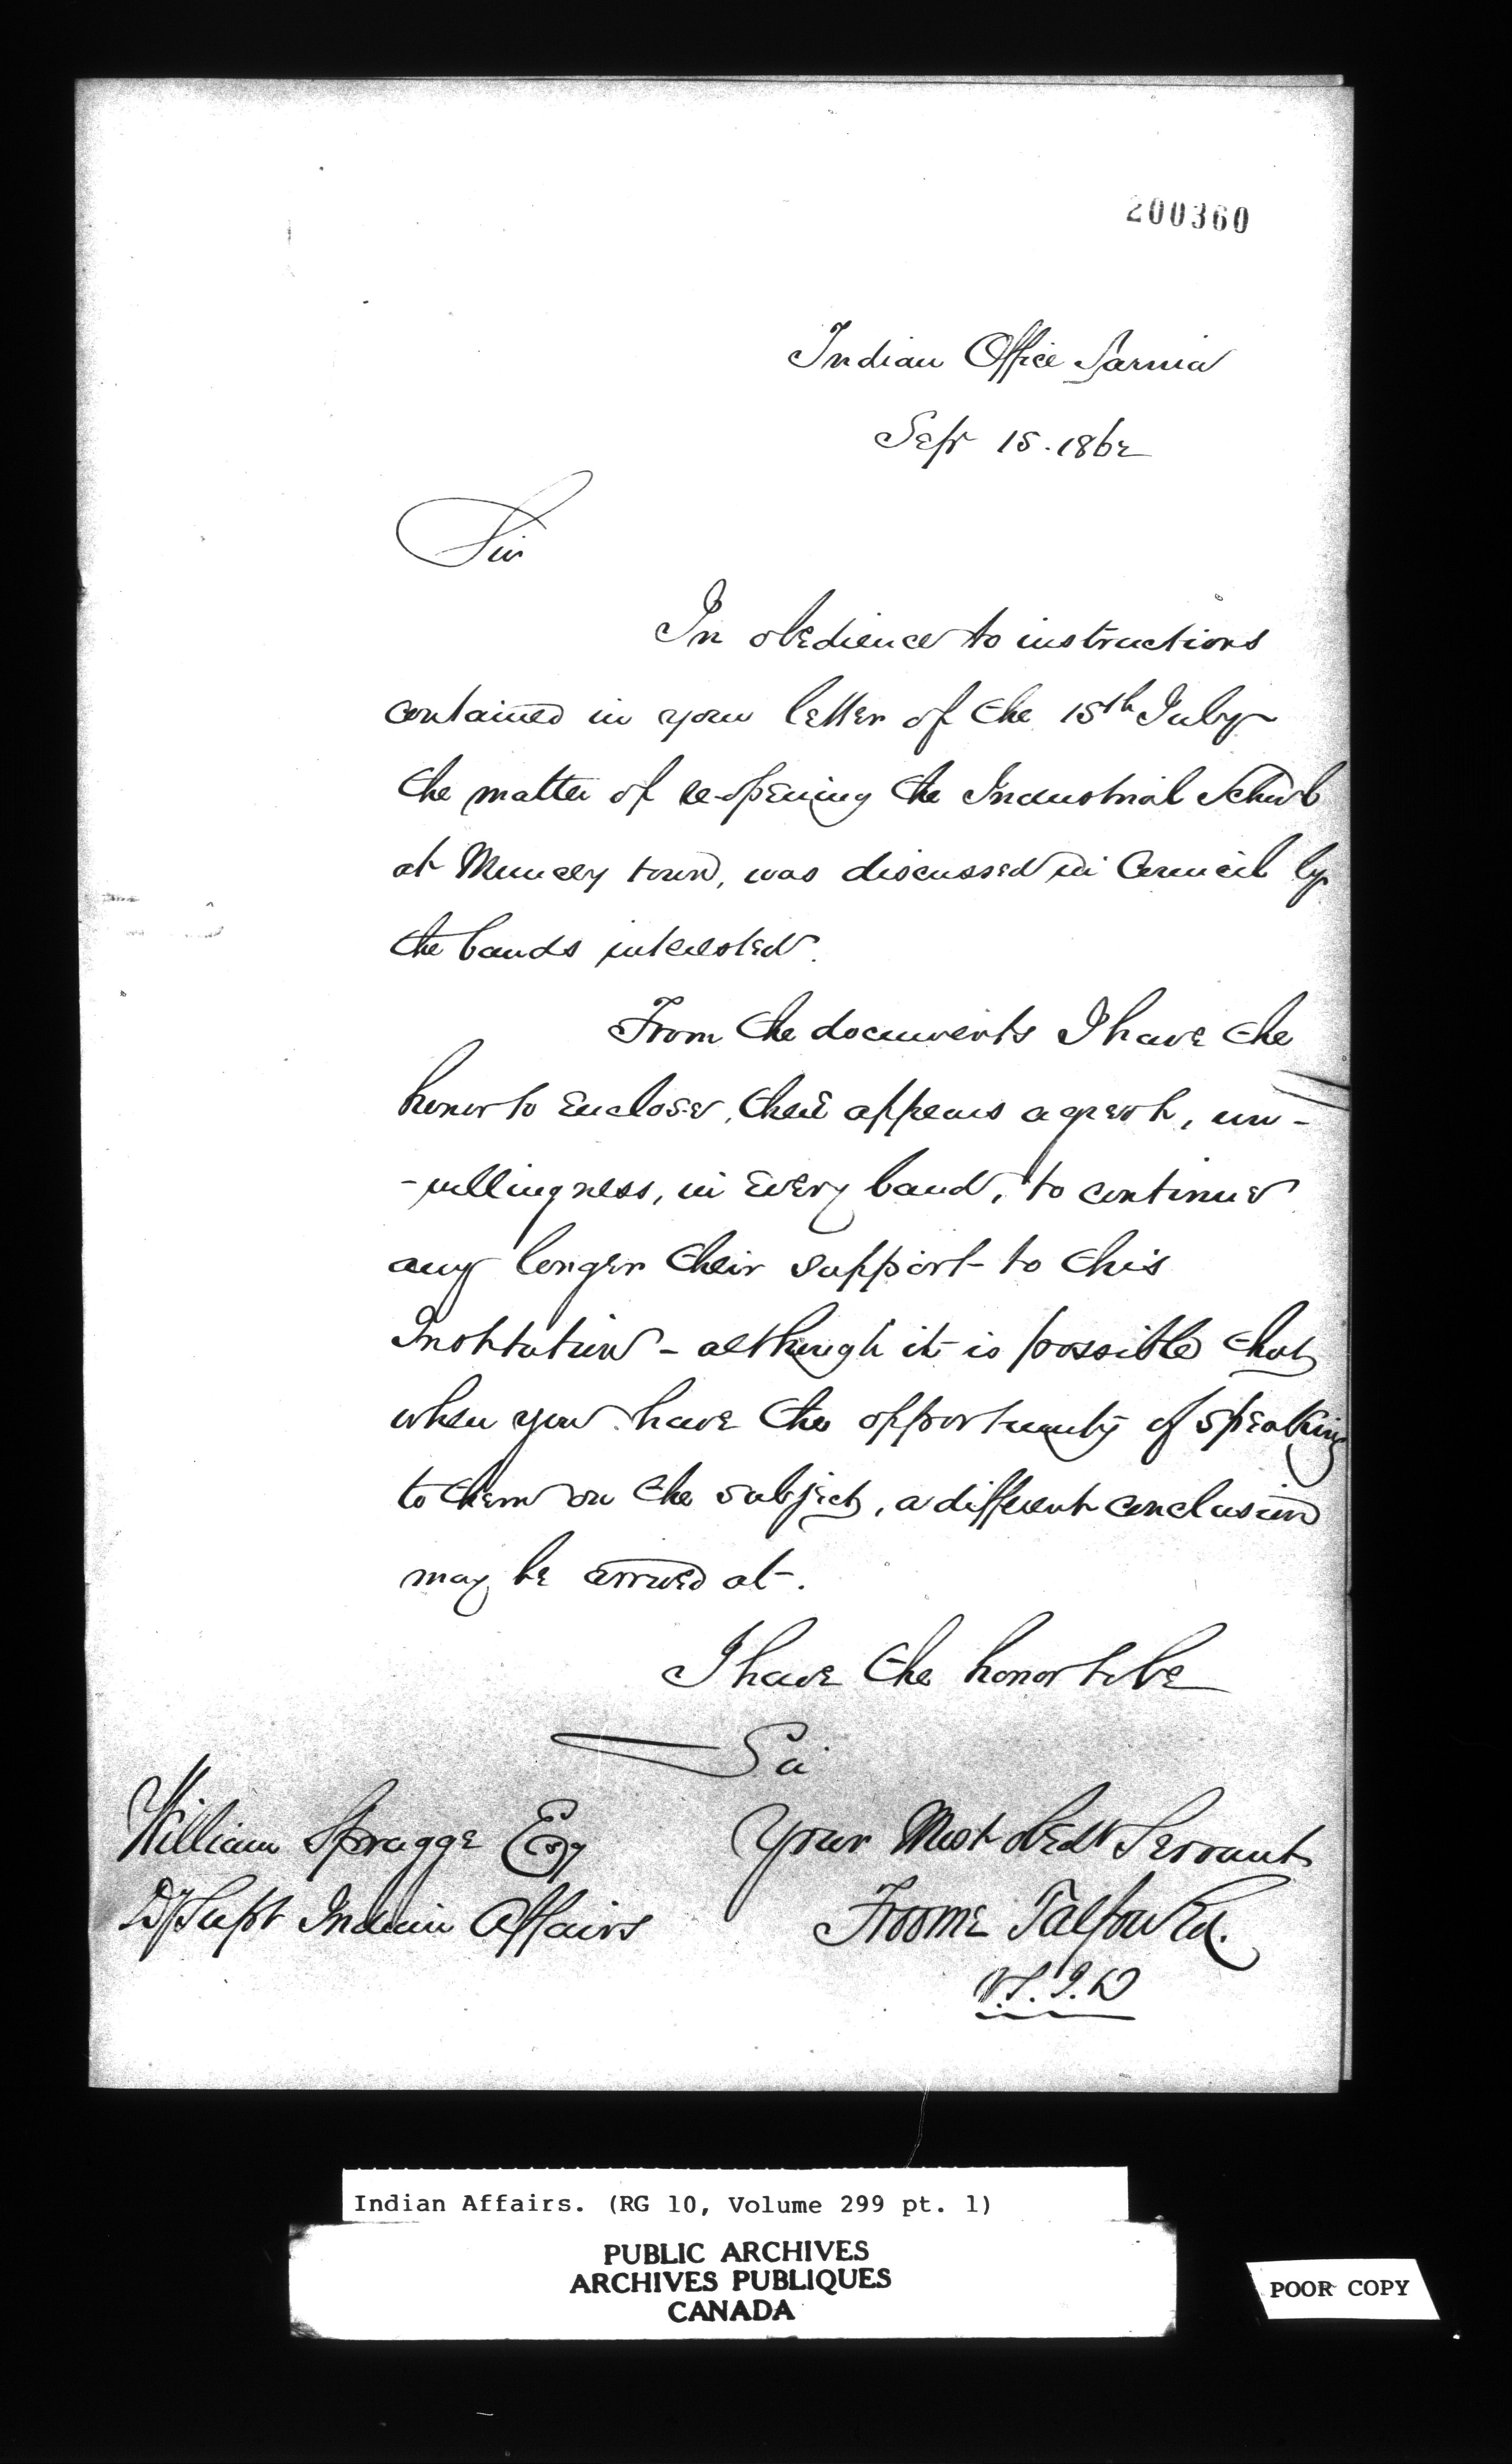 200360
Indian Office Sarnia
Sept 15. 1862
Sir
In obedience to instructions
contained in your letter of the 15th July
the matter of re-opening the Industrial School
at Muncey town, was discussed in Council by
the bands interested.
From the documents I have the
honor to enclose, there appears a great, un-
-willingness, in every band, to continue
any longer their support to this
Institution - although it is possible that
when you have the opportunity of speaking
to them on the subject, a different conclusion
may be arrived at.
I have the honor to be
Sir
William Spragge Esq
Your Most obedt Servant
Dy Supt Indian Affairs
Froome Talfourd.
V.S.I.D
Indian Affairs. (RG 10, Volume 299 pt. 1)
PUBLIC ARCHIVES
ARCHIVES PUBLIQUES
CANADA
POOR COPY